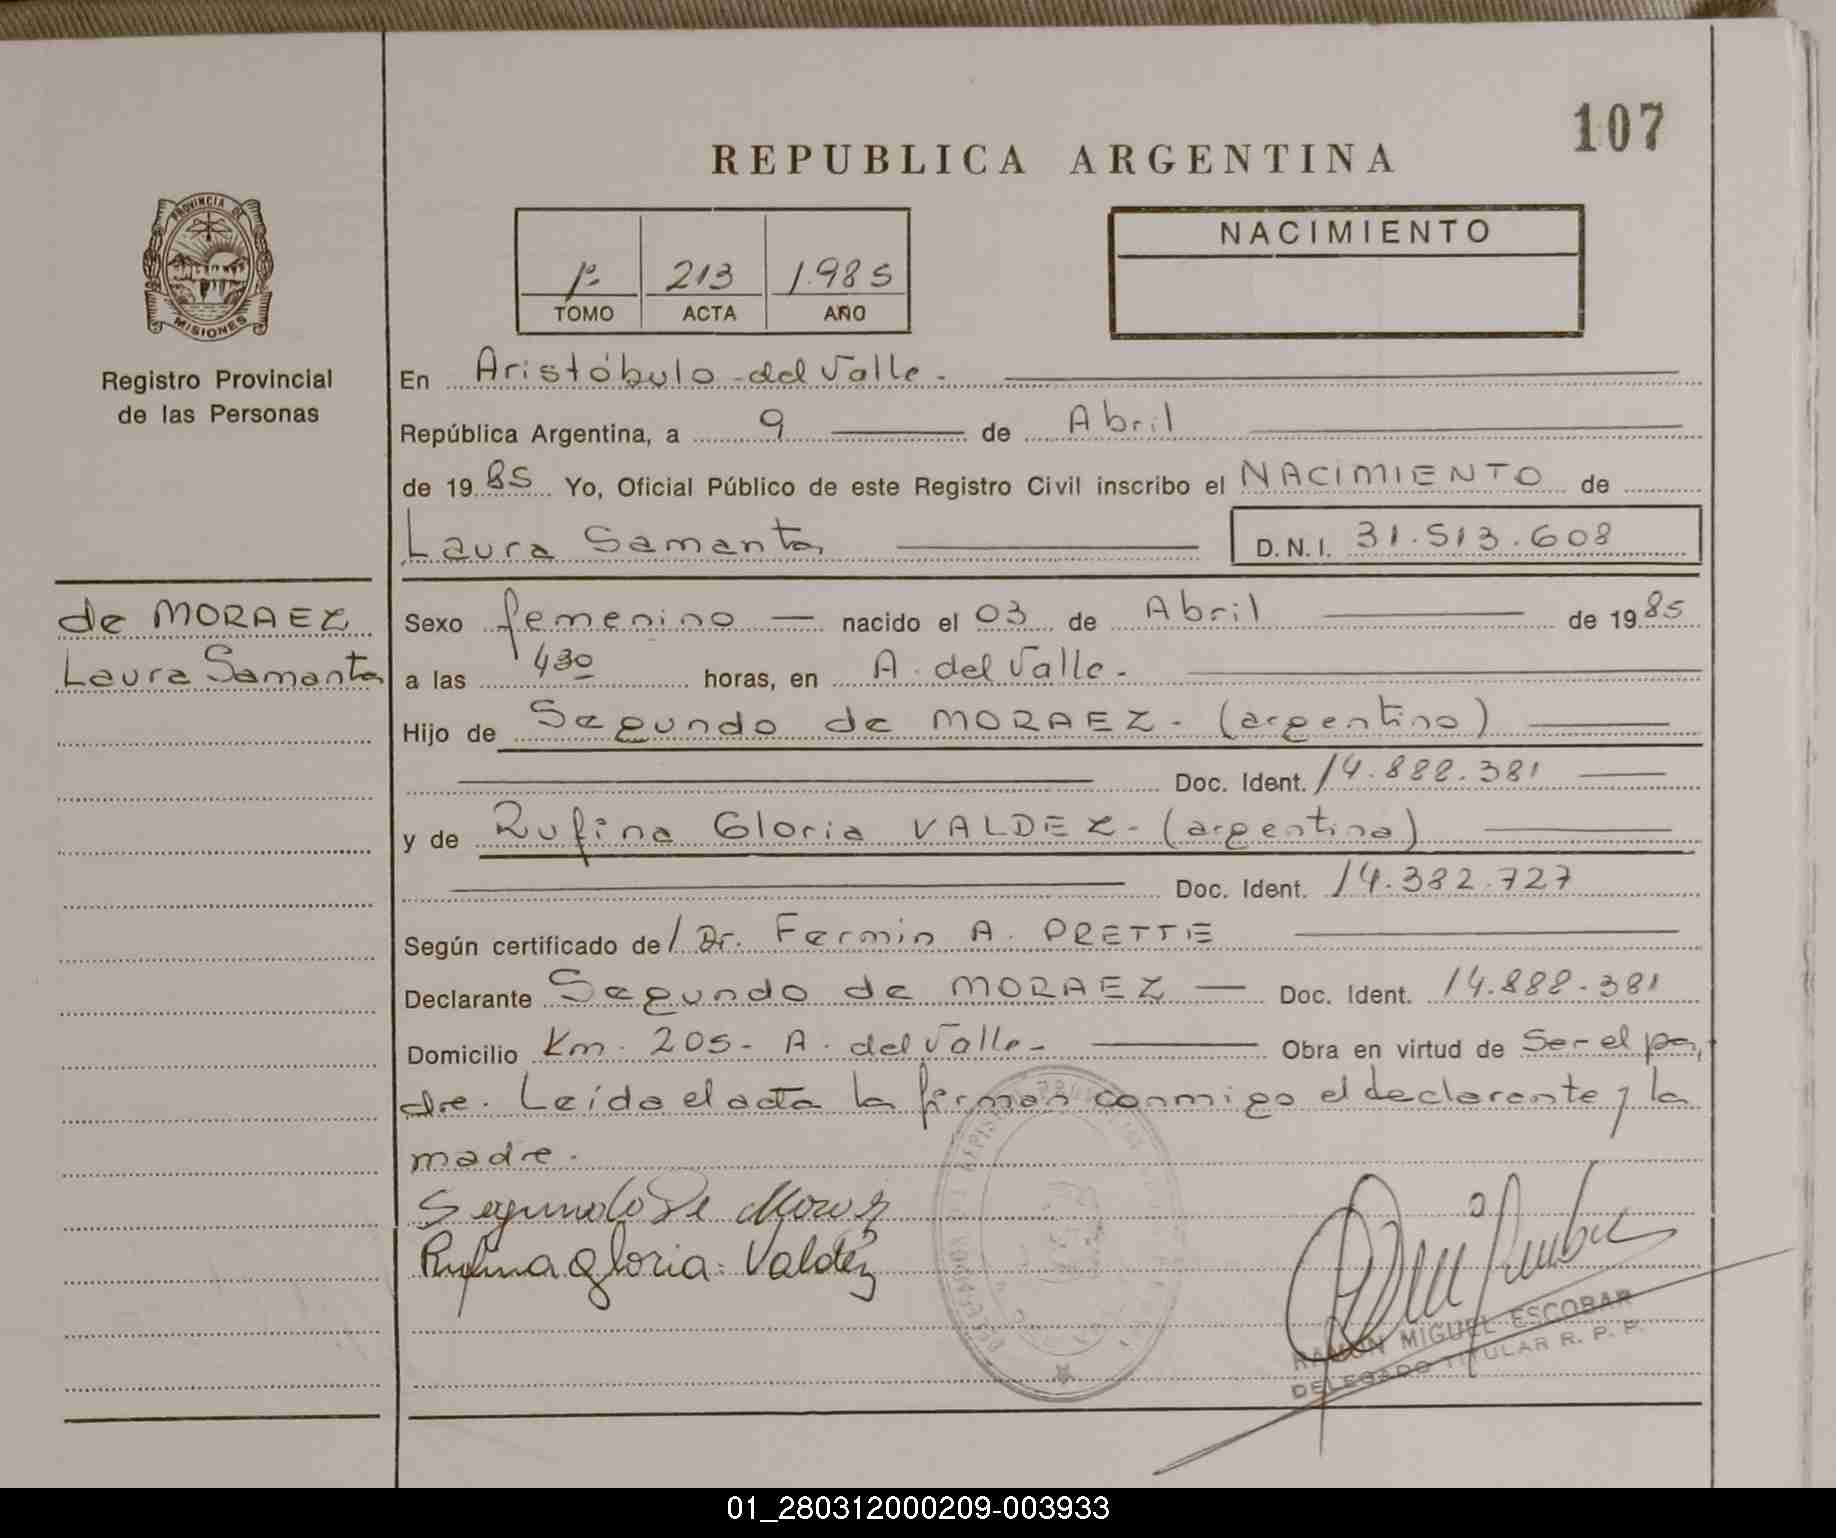 107
REPUBLICA ARGENTINA
PROVINCIA DE
MISIONES
Registro Provincial
de las Personas
1º 213 1.985
TOMO ACTA AÑO
NACIMIENTO
En Aristóbulo del Valle.
República Argentina, a 9 de Abril
de 1985 Yo, Oficial Público de este Registro Civil inscribo el NACIMIENTO de
Laura Samanta D.N.I. 31.513.608
de MORAEZ
Laura Samanta
Sexo femenino nacido el 03 de Abril de 1985
a las 430 horas, en A. del Valle.
Hijo de Segundo de MORAEZ - (argentino)
Doc. Ident. 14.888.381
y de Rufina Gloria VALDEZ - (argentina)
Doc. Ident. 14.382.727
Según certificado de Dr. Fermin A. PRETTIE
Declarante Segundo de MORAEZ Doc. Ident. 14.888.381
Domicilio Km. 205 - A. del Valle - Obra en virtud de Ser el pa,
dre. Leída el acta la firman conmigo el declarante y la
madre.
Segundo De Moraez
Rufina Gloria Valdéz
RAMON MIGUEL ESCOBAR
DELEGADO TITULAR R. P. P.
01_280312000209-003933